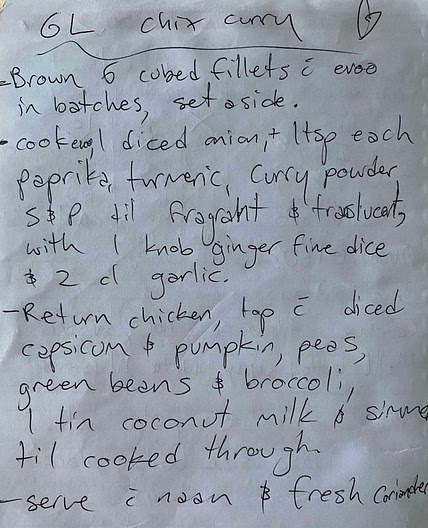 GL chix curry
- Brown 6 cubed fillets c̄ evoo
in batches, set aside.
- cook 1 diced onion, + 1 tsp each
paprika, turmeric, curry powder
S&P til fragrant & translucent,
with 1 knob ginger fine dice
& 2 cl garlic.
- Return chicken, top c̄ diced
capsicum & pumpkin, peas,
green beans & broccoli,
1 tin coconut milk & simme
til cooked through.
- serve c̄ naan & fresh coriander